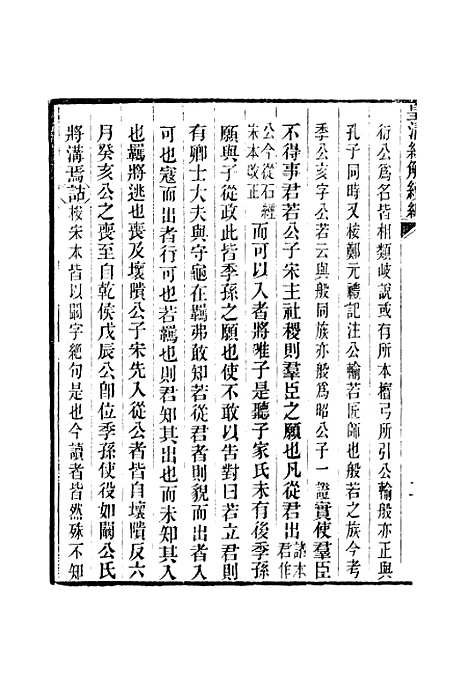 皇清經解續編
衍公爲名皆相類歧說或有所本檀弓所引公輸般亦正與
孔子同時又桉鄭元禮記注公輸若匠師也般若之族今考
季公亥字公若云與般同族亦般爲昭公子一證實使羣臣
不得事君若公子宋主社稷則羣臣之願也凡從君出諸本君作
公今從石經宋本改正而可以入者將唯子是聽子家氏未有後季孫
願與子從政此皆季孫之願也使不敢以告對曰若立君則
有卿士大夫與守龜在羈弗敢知若從君者則貌而出者入
可也寇而出者行可也若羈也則君知其出也而未知其入
也羈將逃也喪及壞隤公子宋先入從公者皆自壞隤反六
月癸亥公之喪至自乾侯戊辰公卽位季孫使役如闞公氏
將溝焉詁桉宋本皆以闞字絕句是也今讀者皆然殊不知